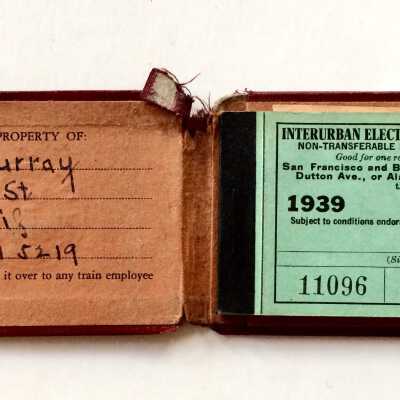 PROPERTY OF:
urray
St
if
1 5219
it over to any train employee
INTERURBAN ELECT
NON-TRANSFERABLE
Good for one ro
San Francisco and B
Dutton Ave., or Ala
t
1939
Subject to conditions endors
(Si
11096